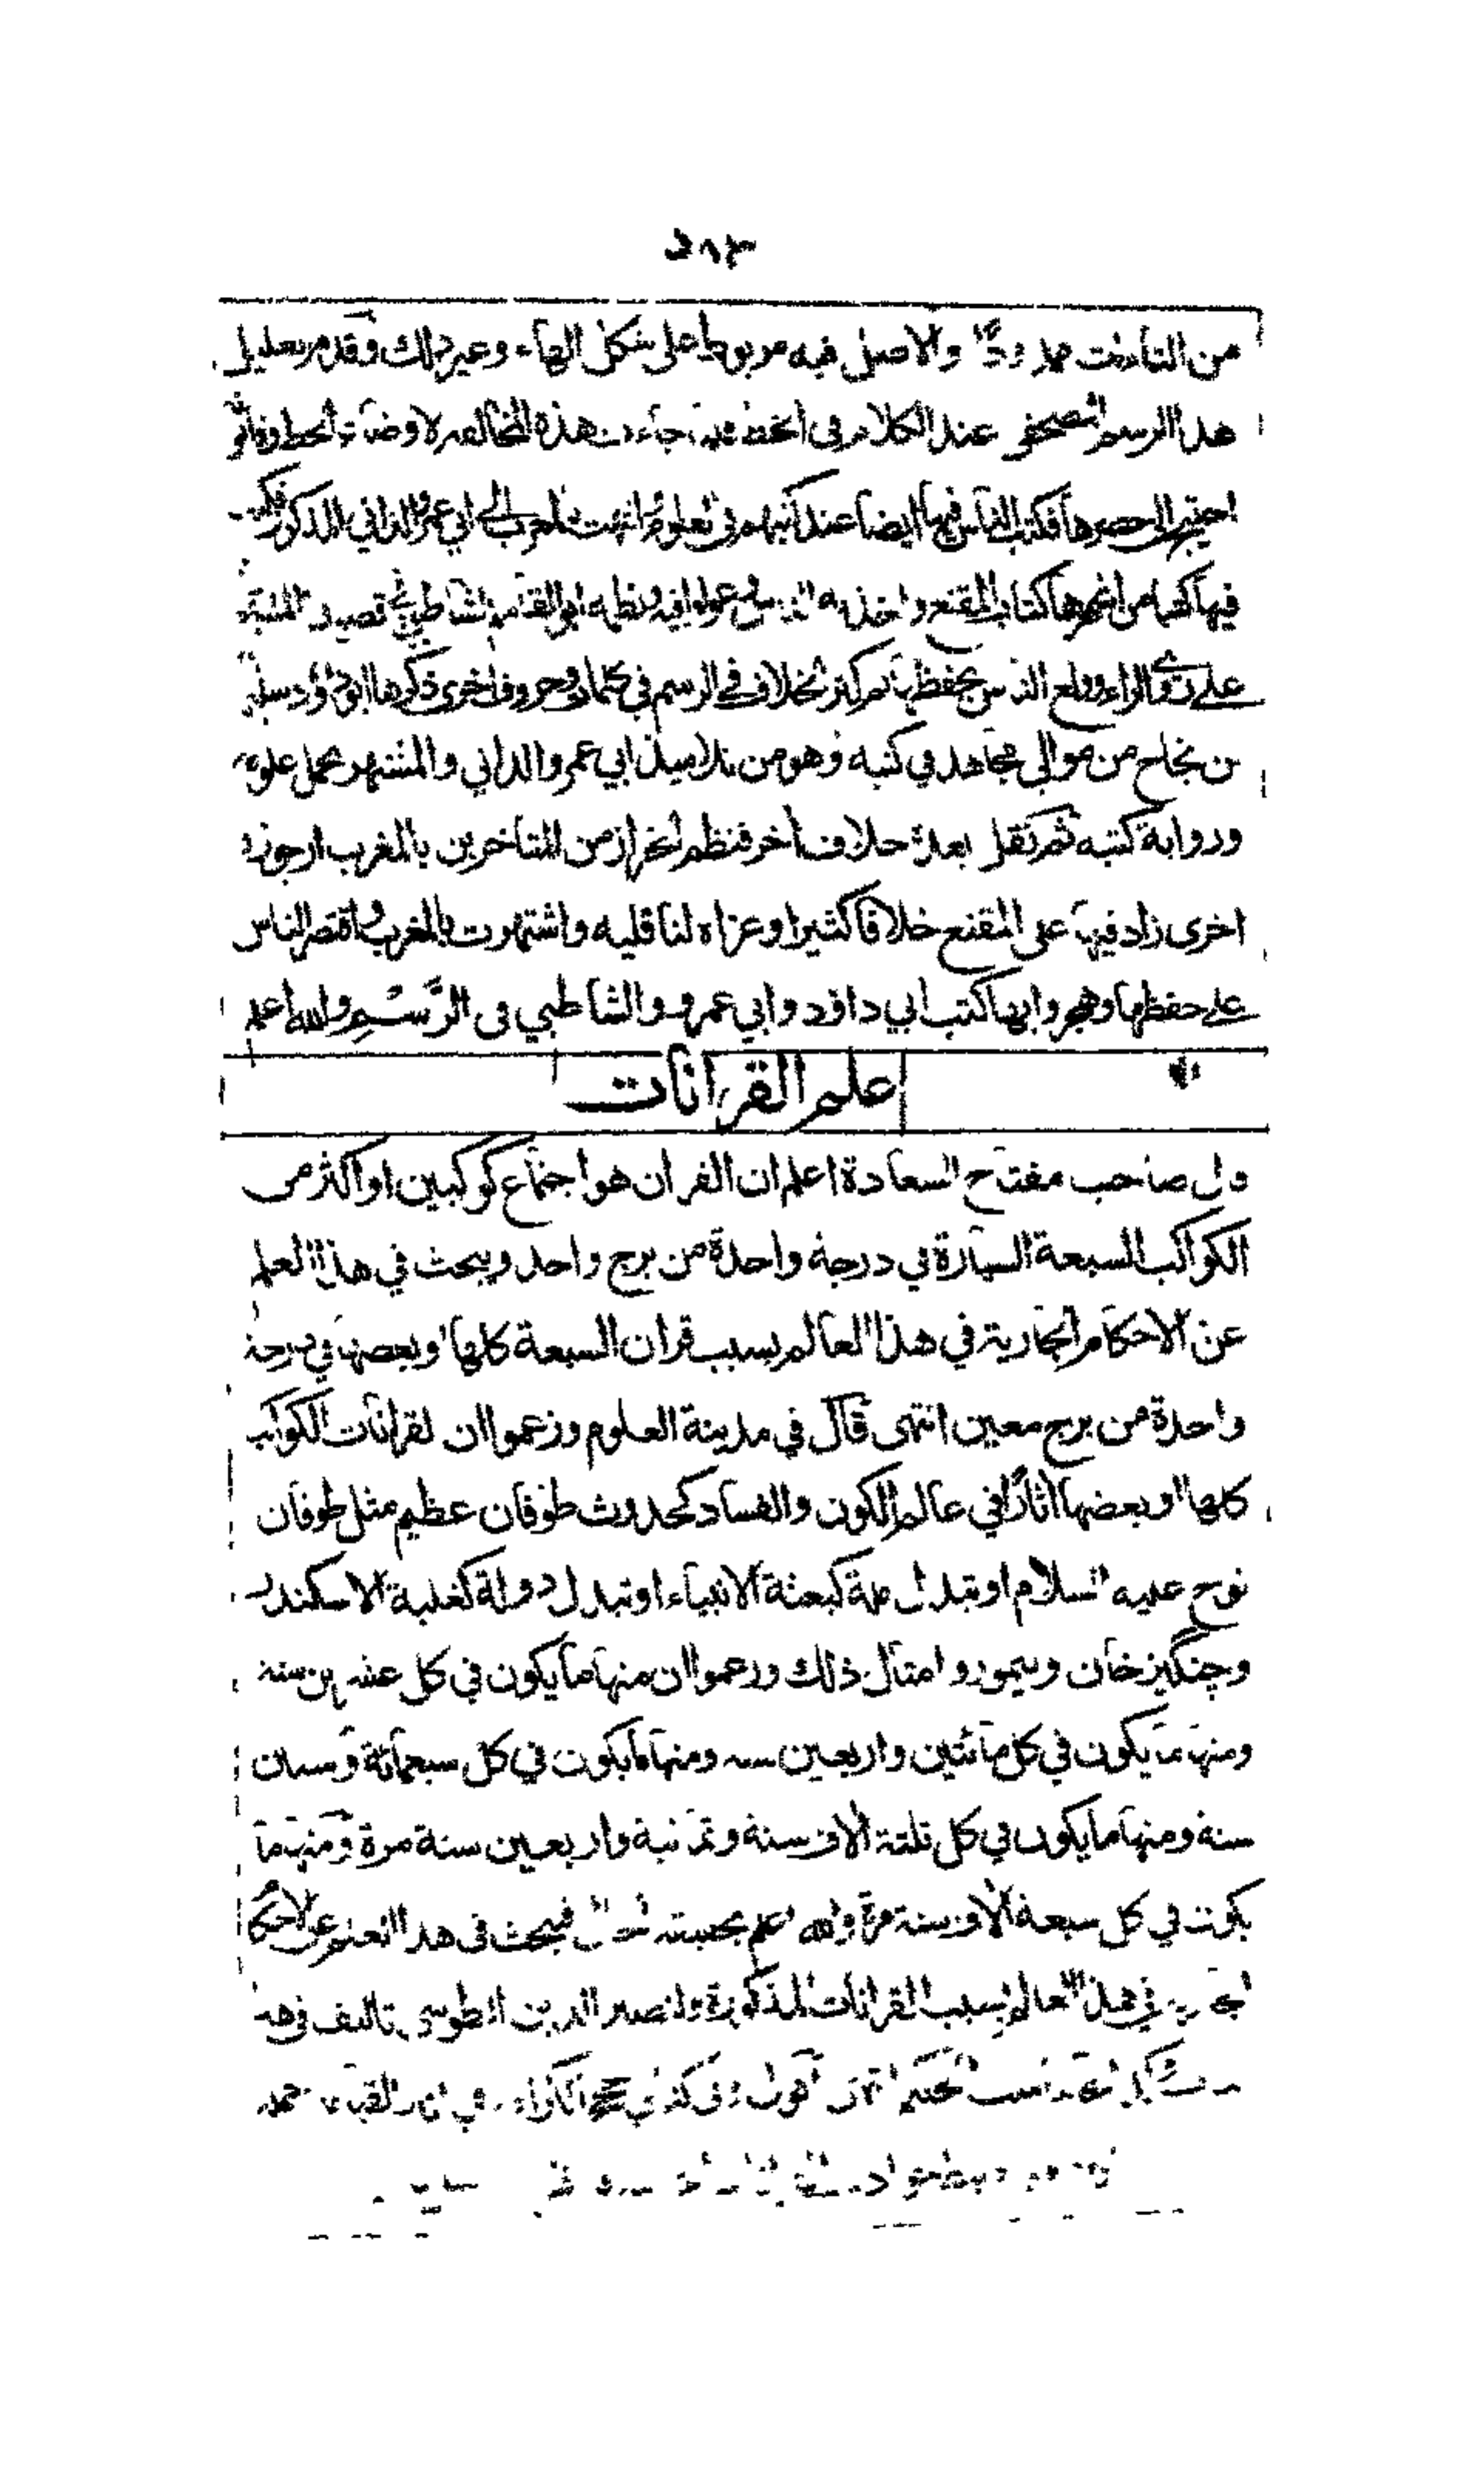 ٥٨٣
من التاءات ممدودًا والاصل فيه مربوط على شكل الهاء وغير ذلك وقد مر تعليل
هذا الرسم المصحفي عند الكلام في الخط فلما جاءت هذه المخالفة لاوضاع الخط وقانونه
احتيج الى حصرها فكتب الناس فيها ايضا عند كتبهم في العلوم وانتهت بالمغرب الى ابي عمرو الداني المذكور فكتب
فيها كتبا من اشهرها كتاب المقنع واخذ به الناس وعولوا عليه ونظمه ابو القاسم الشاطبي في قصيدته المشهورة
على روي الراء وولع الناس بحفظها ثم كثر الخلاف في الرسم في كلمات وحروف اخرى ذكرها ابو داؤد سليمان
بن نجاح من موالي مجاهد في كتبه وهو من تلاميذ ابي عمرو الداني والمشتهر بحمل علومه
ورواية كتبه ثم نقل بعده خلاف اخر فنظم الخراز من المتاخرين بالمغرب ارجوزة
اخرى زاد فيها على المقنع خلافا كثيرا وعزاه لناقليه واشتهرت بالمغرب واقتصر الناس
على حفظها وهجروا بها كتب ابي داود وابي عمرو والشاطبي في الرَّسْم والله اعلم
علم القرانات
قال صاحب مفتاح السعادة اعلم ان القران هو اجتماع كوكبين او اكثر من
الكواكب السبعة السيارة في درجة واحدة من برج واحد ويبحث في هذا العلم
عن الاحكام الجارية في هذا العالم بسبب قران السبعة كلها او بعضها في درجة
واحدة من برج معين انتهى قال في مدينة العلوم وزعموا ان لقرانات الكواكب
كلها او بعضها اثارًا في عالم الكون والفساد كحدوث طوفان عظيم مثل طوفان
نوح عليه السلام او تبدل ملة كبعثة الانبياء او تبدل دولة كغلبة الاسكندر
وچنگيز خان وتيمور وامثال ذلك وزعموا ان منها ما يكون في كل عشرين سنة
ومنها ما يكون في كل مائتين واربعين سنة ومنها ما يكون في كل سبعمائة وستين
سنة ومنها ما يكون في كل ثلثة الاف سنة وثمانية واربعين سنة مرة ومنها ما
يكون في كل سبعة الاف سنة مرة والله اعلم بحقيقة الحال فيبحث في هذا العلم عن الاحكام
الجارية في هذا العالم بسبب القرانات المذكورة ولنصير الدين الطوسي تاليف في هذا
اقول وفي كتابي حجج الكرامة في اثار القيامة